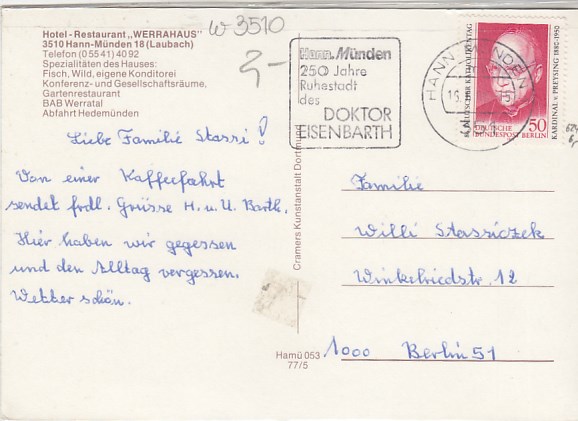 W 3510
Hotel-Restaurant „WERRAHAUS"
3510 Hann-Münden 18 (Laubach)
Telefon (0 55 41) 40 92
Spezialitäten des Hauses:
Fisch, Wild, eigene Konditorei
Konferenz- und Gesellschaftsräume,
Gartenrestaurant
BAB Werratal
Abfahrt Hedemünden
2,-
Hann. Münden
250 Jahre
Ruhestadt
des
DOKTOR
EISENBARTH
HANN. MÜNDEN
DEUTSCHER KATHOLIKENTAG
KARDINAL v. PREYSING 1880-1950
DEUTSCHE
BUNDESPOST BERLIN
50
Liebe Familie Stassi!
Von einer Kaffeefahrt
sendet frdl. Grüsse H. u. U. Barth.
Hier haben wir gegessen
und den Alltag vergessen.
Wetter schön.
Cramers Kunstanstalt Dortmund
Familie
Willi Stassiczek
Winkelriedstr. 12
1000 Berlin 51
Hamü 053
77/5